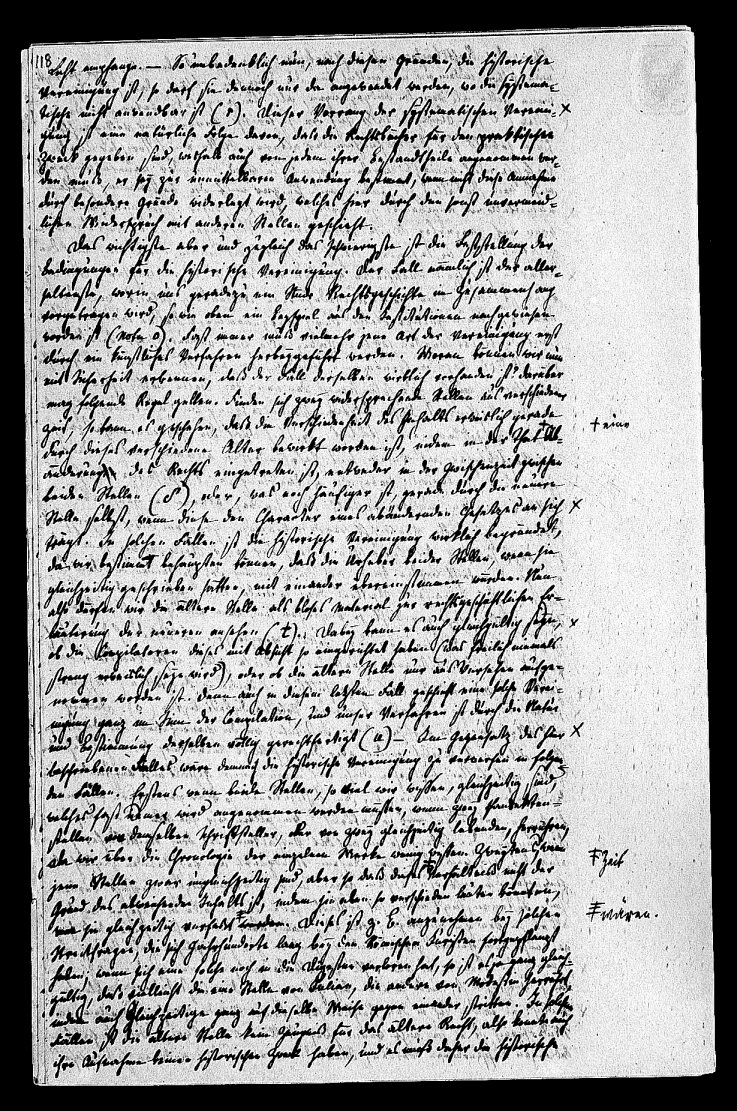 118
Licht empfange. — So unbedenklich nun, nach diesen Gründen, die historische
Vereinigung ist, so darf sie dennoch nur da angewendet werden, wo die systema-
tische nicht anwendbar ist (s). Dieser Vorrang der systematischen Verein-
gung ist eine natürliche Folge davon, daß die Rechtsbücher für den praktischen
Zweck gegeben sind, weshalb auch von jedem ihrer Bestandtheile angenommen wer-
den muß, er sey zur unmittelbaren Anwendung bestimmt, wenn nicht diese Annahme
durch besondere Gründe widerlegt wird, welches hier durch den sonst unvermeid-
lichen Widerspruch mit anderen Stellen geschieht.
Das wichtigste aber und zugleich das schwierigste ist die Feststellung der
Bedingungen für die historische Vereinigung. Der Fall nämlich ist der aller-
seltenste, worin uns geradezu ein Stück Rechtsgeschichte im Zusammenhang
vorgetragen wird, so wie oben ein Beyspiel aus den Institutionen nachgewiesen
worden ist (Note o). Fast immer muß vielmehr jene Art der Vereinigung erst
durch ein künstliches Verfahren herbeygeführt werden. Woran können wir nun
mit Sicherheit erkennen, daß der Fall derselben wirklich vorhanden ist? darüber
mag folgende Regel gelten. Finden sich zwey widersprechende Stellen aus verschiedener
Zeit, so kann es geschehen, daß die Verschiedenheit des Inhalts erweislich gerade
durch dieses verschiedene Alter bewirkt worden ist, indem in der That Ab-
† eine
änderung des Rechts eingetreten ist, entweder in der Zwischenzeit zwischen
beiden Stellen, oder, was noch häufiger ist, gerade durch die neuere
Stelle selbst, wenn diese den Character eines abändernden Gesetzes an sich
trägt. In solchen Fällen ist die historische Vereinigung wirklich begründet,
da wir bestimmt behaupten können, daß die Urheber beider Stellen, wenn sie
gleichzeitig geschrieben hätten, mit einander übereinstimmen würden. Nun
also dürfen wir die ältere Stelle als bloßes Material zur rechtsgeschichtlichen Er-
läuterung der neueren ansehen (t). Dabey kann es auch gleichgültig seyn,
ob die Compilatoren dieses mit Absicht so eingerichtet haben (das freilich niemals
streng erweislich seyn wird), oder ob die ältere Stelle nur aus Versehen aufge-
nommen worden ist. Denn auch in diesem letzten Fall geschieht eine solche Verei-
nigung ganz im Sinn der Compilation, und unser Verfahren ist durch die Natur
und Bestimmung derselben völlig gerechtfertigt (u). — Im Gegensatz des hier
beschriebenen Falles wäre demnach die historische Vereinigung zu verwerfen in folgen-
den Fällen. Erstens wenn beide Stellen, so viel wir wissen, gleichzeitig sind,
welches fast immer wird angenommen werden müssen, wenn zwey Pandekten-
stellen von demselben Schriftsteller, oder von zwey gleichzeitig lebenden, herrühren,
da wir über die Chronologie der einzelnen Werke wenig wissen. Zweytens wenn
jene Stellen zwar ungleichzeitig sind, aber so daß dieses Verhältniß nicht der
Zeit
Grund des abweichenden Inhalts ist, indem sie eben so verschieden lauten könnten,
wenn sie gleichzeitig verfaßt
wären.
Dieses ist z. B. anzunehmen bey solchen
Streitfragen, die sich Jahrhunderte lang bey den Römischen Juristen fortgepflanzt
haben; wenn sich eine solche noch in die Digesten verloren hat, so ist es ganz gleich-
gültig, daß vielleicht die eine Stelle von Labeo, die andere von Modestin herrührt
indem auch gleichzeitige ganz auf dieselbe Weise gegen einander stritten. In solchen
Fällen ist die ältere Stelle kein Zeugniß für das ältere Recht, also konnte auch
ihre Aufnahme keinen historischen Zweck haben, und es muß daher die historische